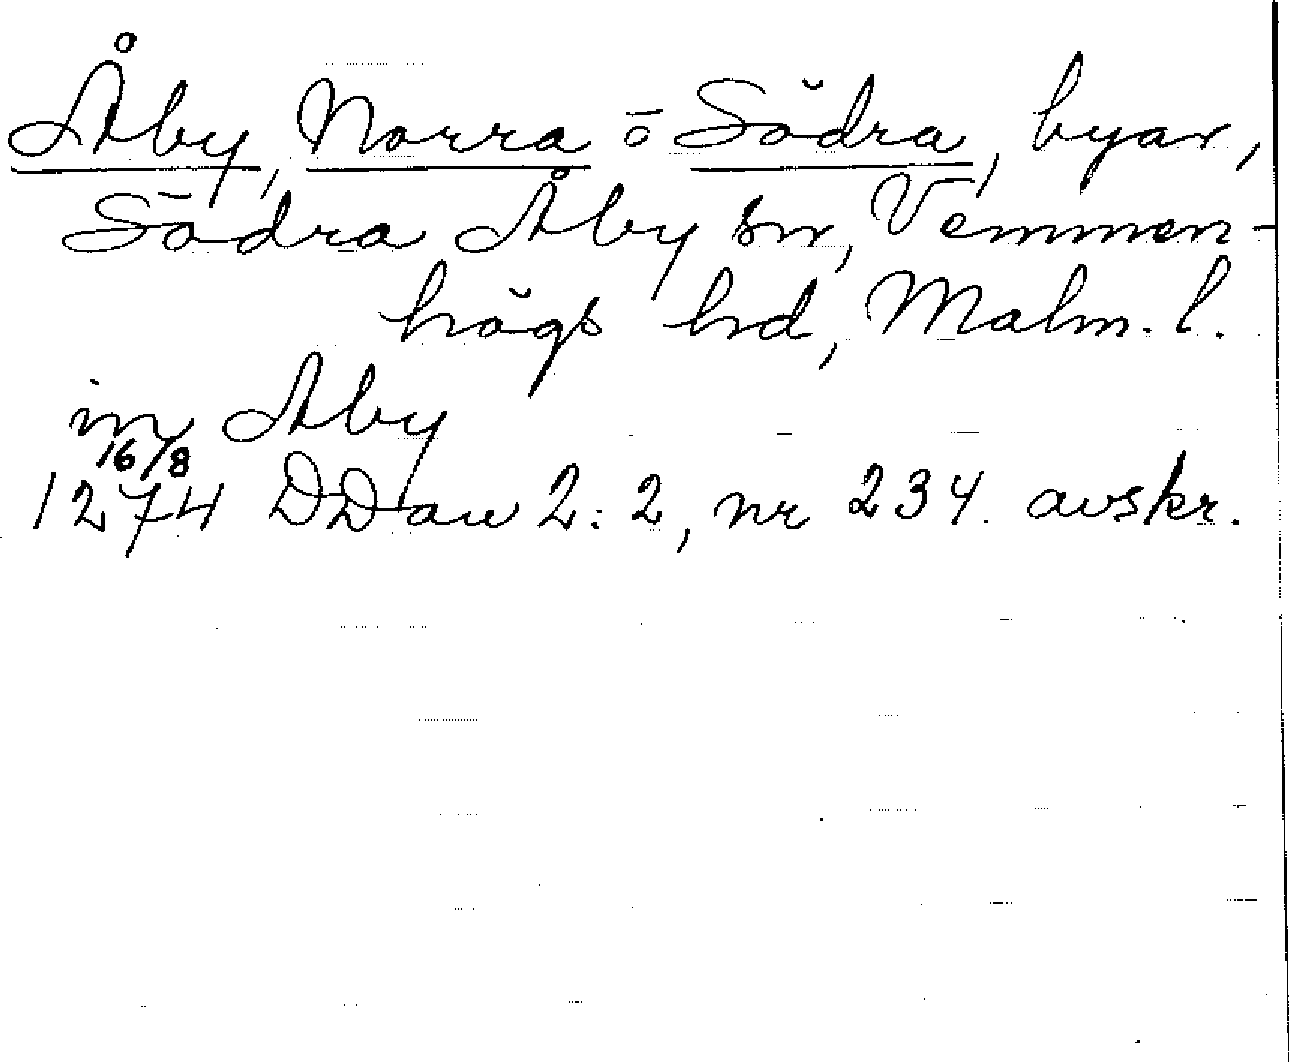 Åby, Norra o Södra, byar,
Södra Åby sn, Vemmen-
högs hd, Malm. l.
in Aby
16/8
1274 DD au 2:2, nr 234. avskr.